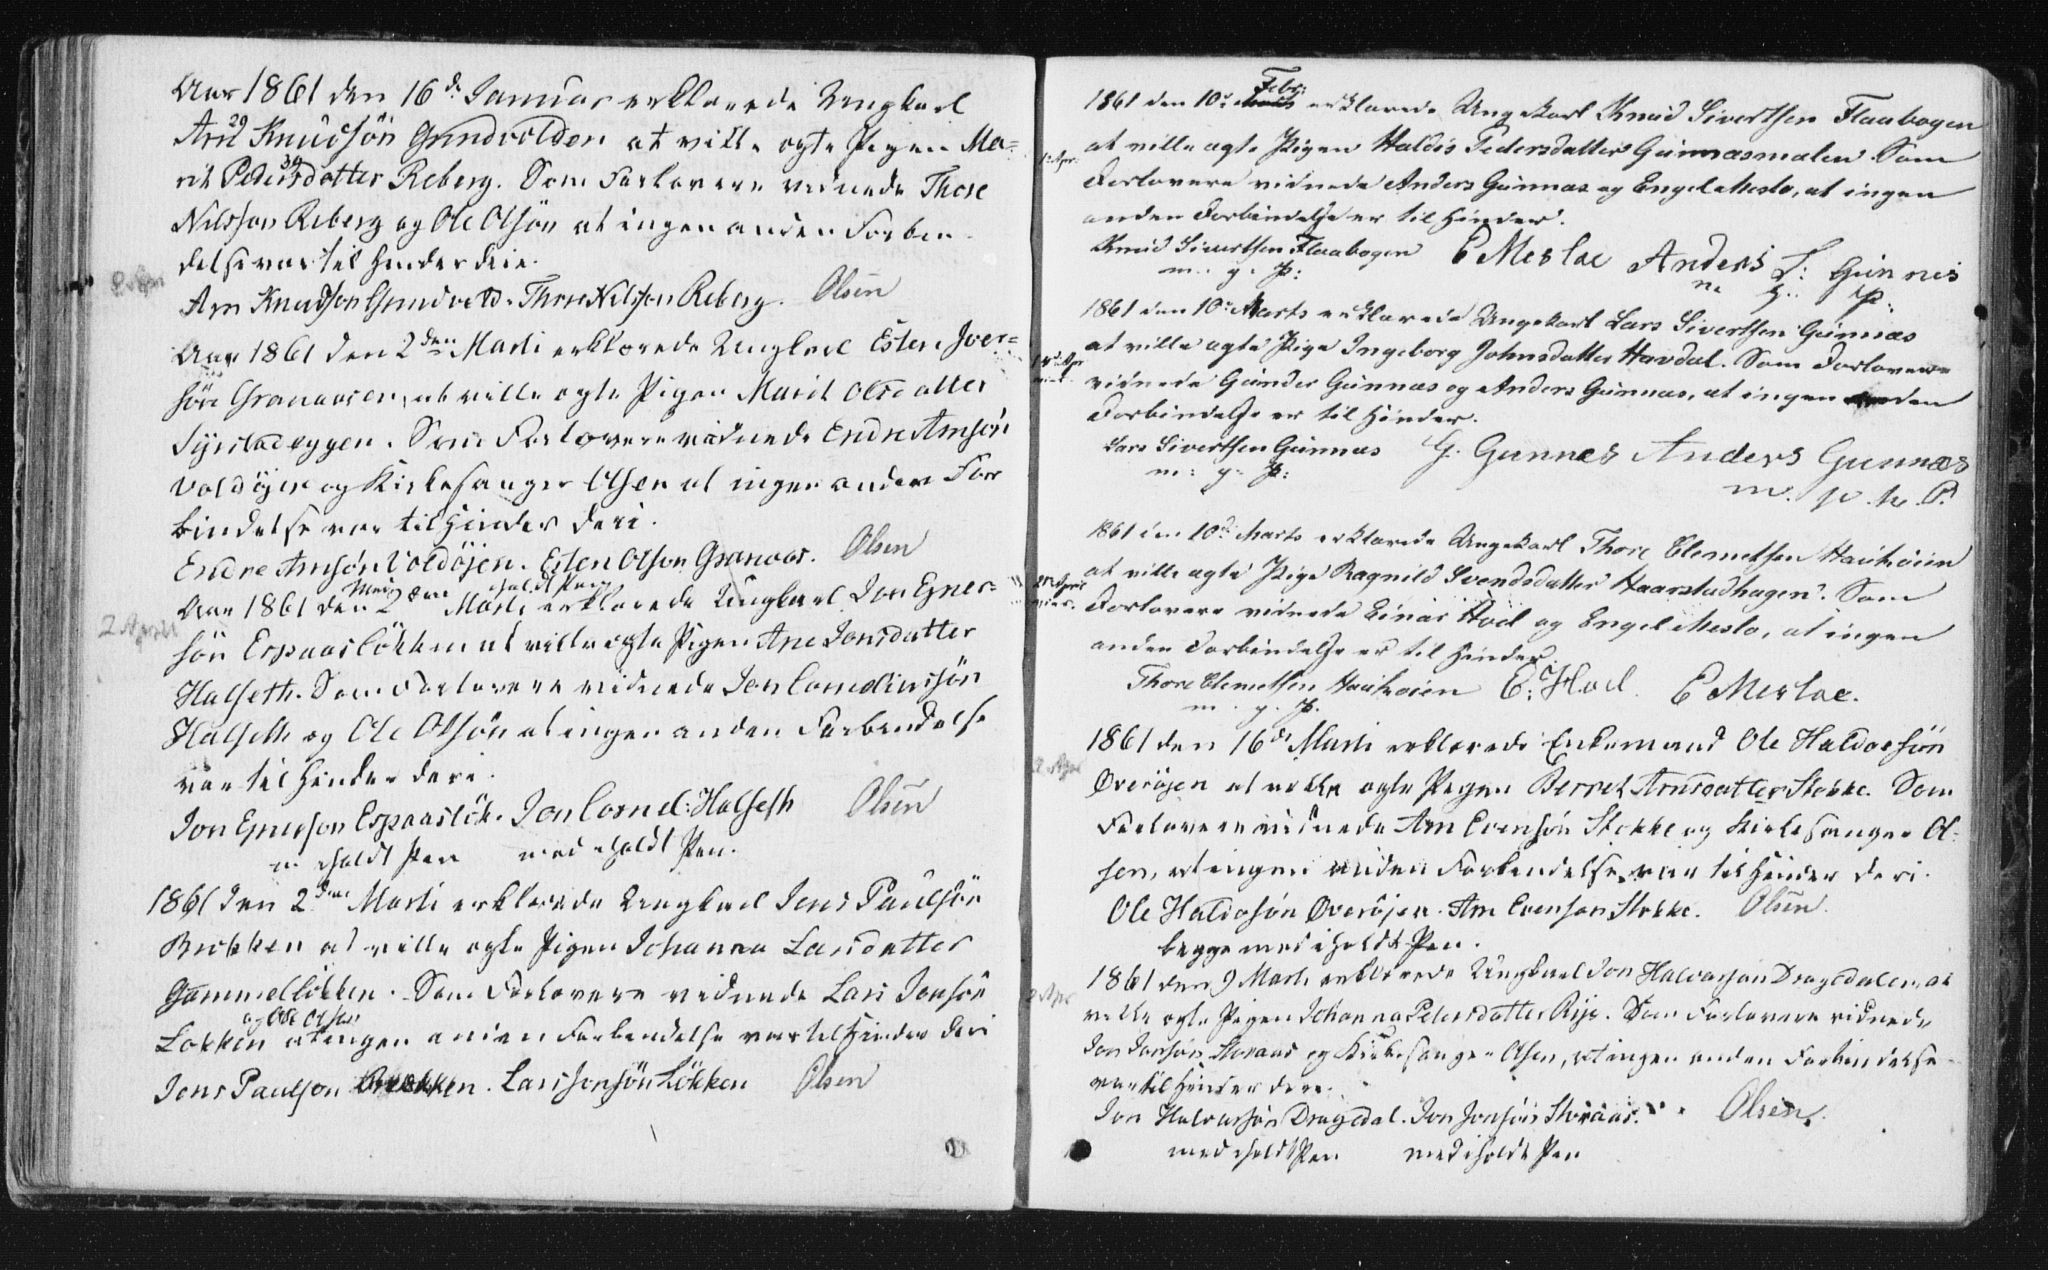 Aar 1861 den 16de Januar erklærede Ungkarl
Arn 29 Knudsøn Grindvolden at ville egte Pigen Ma-
rit Peders 34 datter Reberg. Som Forlovere vidnede Thore
Nilsson Reberg og Ole Olsøn at ingen anden Forbin-
delse var til Hinder deri.
Arn Knudson Grindvold. Thore Nilsson Reberg. Olsen
Aar 1861 den 2den Marti erklærede Ungkarl Esten Iver-
søn Granaasen, at ville egte Pigen Marit Olsdatter
Syrstadeggen. Som Forlovere vidnede Endre Arnsøn
Voldøien og Kirkesanger Olsen at ingen anden For
bindelse var til Hinder deri.
Endre Arnsøn Voldøjen. Esten Olson Granaas. Olsen
2 April
Aar 1861 den 2den Marti erklærede Ungkarl Jon Ejner-
søn Espaasløkken at ville egte Pigen Ane Jonsdatter
Halseth. Som Forlovere vidnede Jon Corneliussøn
Halseth og Ole Olsøn at ingen anden Forbindelse
var til Hinder deri.
Jon Ejnerson Espaasløk. Jon Cornel: Halseth Olsen
m iholdt Pen med iholdt Pen.
1861 den 2den Marti erklærede Ungkarl Jens Paulsøn
Brekken at ville egte Pigen Johanna Larsdatter
Gammelløkken. Som Forlovere vidnede Lars Jonsøn
og Ole Olsen
Løkken at ingen anden Forbindelse var til Hinder deri
Jens Paulson Brekken. Lars Jonsøn Løkken Olsen
Febr:
1861 den 10de erklærede Ungekarl Knud Sivertsen Flaabogen
at ville ægte Pigen Haldis Pedersdatter Gunnasmalen. Som
Forlovere vidnede Anders Gunnas og Engel Meslo, at ingen
anden Forbindelse er til Hinder.
Knud Sivertsen Flaabogen E Mesloe Anders L: Gunnes
m. g. P:
1861 den 10de Marts erklærede Ungekarl Lars Sivertsen Gunnæs
at ville ægte Pige Ingeborg Johnsdatter Havdal. Som Forlovere
vidnede Gunder Gunnæs og Anders Gunnæs, at ingen anden
Forbindelse er til Hinder.
Lars Sivertsen Gunnæs G. Gunnes Anders Gunnæs
m: g. P: m. p. h. P.
1861 den 10de Marts erklærede Ungekarl Thore Clemetsen Hauhoien
at ville ægte Pige Ragnild Svendsdatter Haarstadhagen. Som
Forlovere vidnede Einar Hoel og Engel Meslo, at ingen
anden Forbindelse er til Hinder.
Thore Clemetsen Hauhoien E. Hoel E Mesloe.
m. g. P.
1861 den 16de Marti erklærede Enkemand Ole Haldorsøn
Øverøjen at ville egte Pigen Berret Arnsdatter Stokke. Som
Forlovere vidnede Arn Evensøn Stokke og Kirkesanger Ol-
sen, at ingen anden Forbindelse var til Hinder deri.
Ole Haldosøn Øverøjen. Arn Evenson Stokke. Olsen.
begge med iholdt Pen.
1861 den 9 Marti erklærede Ungkarl Jon Halvorson Dragedalen, at
ville egte Pigen Johanna Pedersdatter Rije. Som Forlovere vidnede
Jon Jonsøn Storaas og Kirkesanger Olsen, at ingen anden Forbindelse
var til Hinder deri.
Jon Halvorsøn Dragedal. Jon Jonsøn Storaas. Olsen.
med iholdt Pen med iholdt Pen